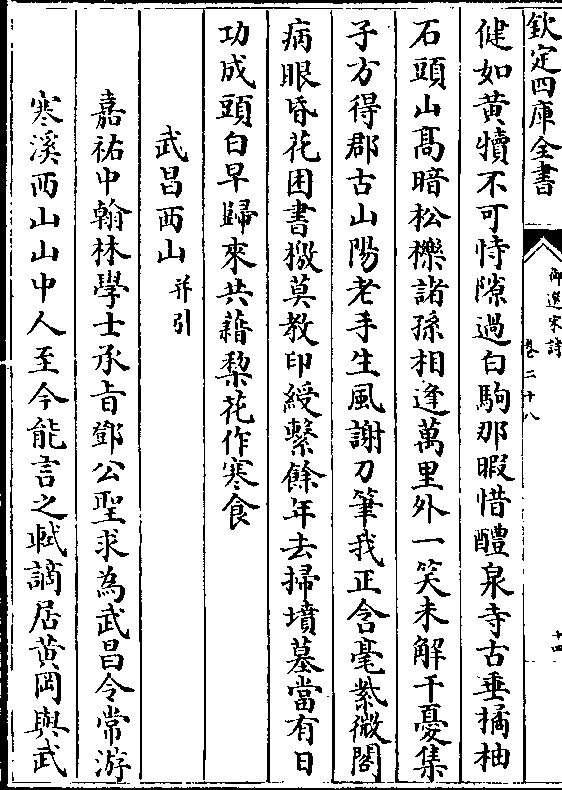 欽定四庫全書
御選宋詩
卷二十八
十四
健如黃犢不可恃隙過白駒那暇惜醴泉寺古垂橘柚
石頭山髙暗松櫟諸孫相逢萬里外一笑未解千憂集
子方得郡古山陽老手生風謝刀筆我正含毫紫微閣
病眼昏花困書檄莫教印綬繫餘年去掃墳墓當有日
功成頭白早歸來共藉梨花作寒食
武昌西山并引
嘉祐中翰林學士承㫖鄧公聖求為武昌令常游
寒溪西山山中人至今能言之軾謫居黃岡與武